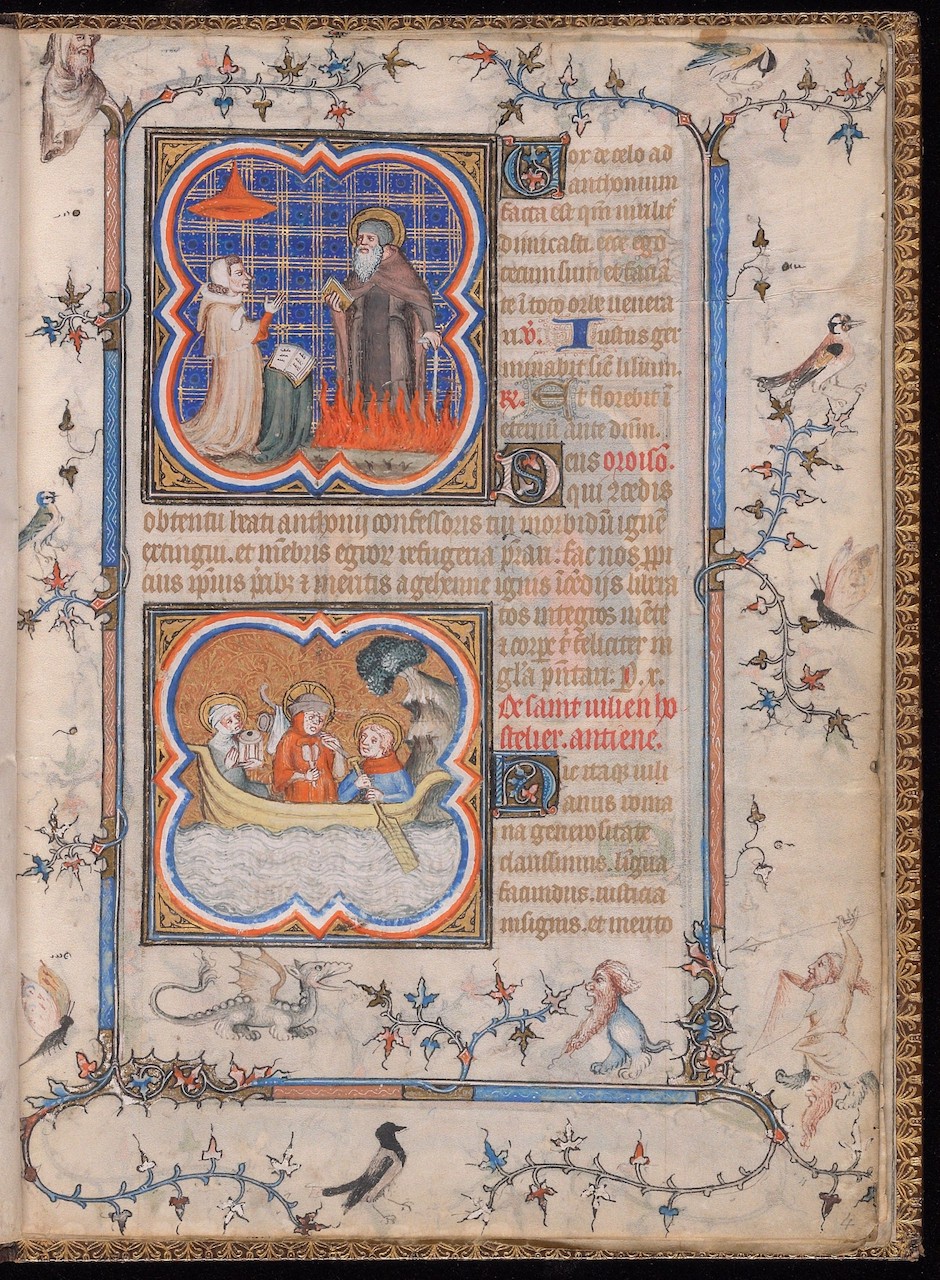 Vox de celo ad
anthonium
facta est qm̄ uirilit̄
dimicasti. ecce ego
tecum sum et faciā
te ī toto orbe uenera
ri. v̄. Iustus ger
minabit sic̄ lilium.
R̄. Et florebit ī
eternū ante dn̄m.
Deus oroisō.
qui ꝯcedis
obtentu beati anthonij confessoris tui morbidū ignē
extingui. et mēbris egroꝝ refrigeria p̄stari. fac nos ꝓpi
cius ip̄ius p̄cibꝫ ⁊ meritis a gehenne ignis īcēdijs libera
tos integros mēte
⁊ corꝑe t̄ feliciter in
gl̄a p̄sentari. P. x.
De saint iulien ho
stelier. antiene.
Hic itaqꝫ iuli
anus roma
na generositate
clarissimus. līgua
facundus. iusticia
insignis. et merito
4